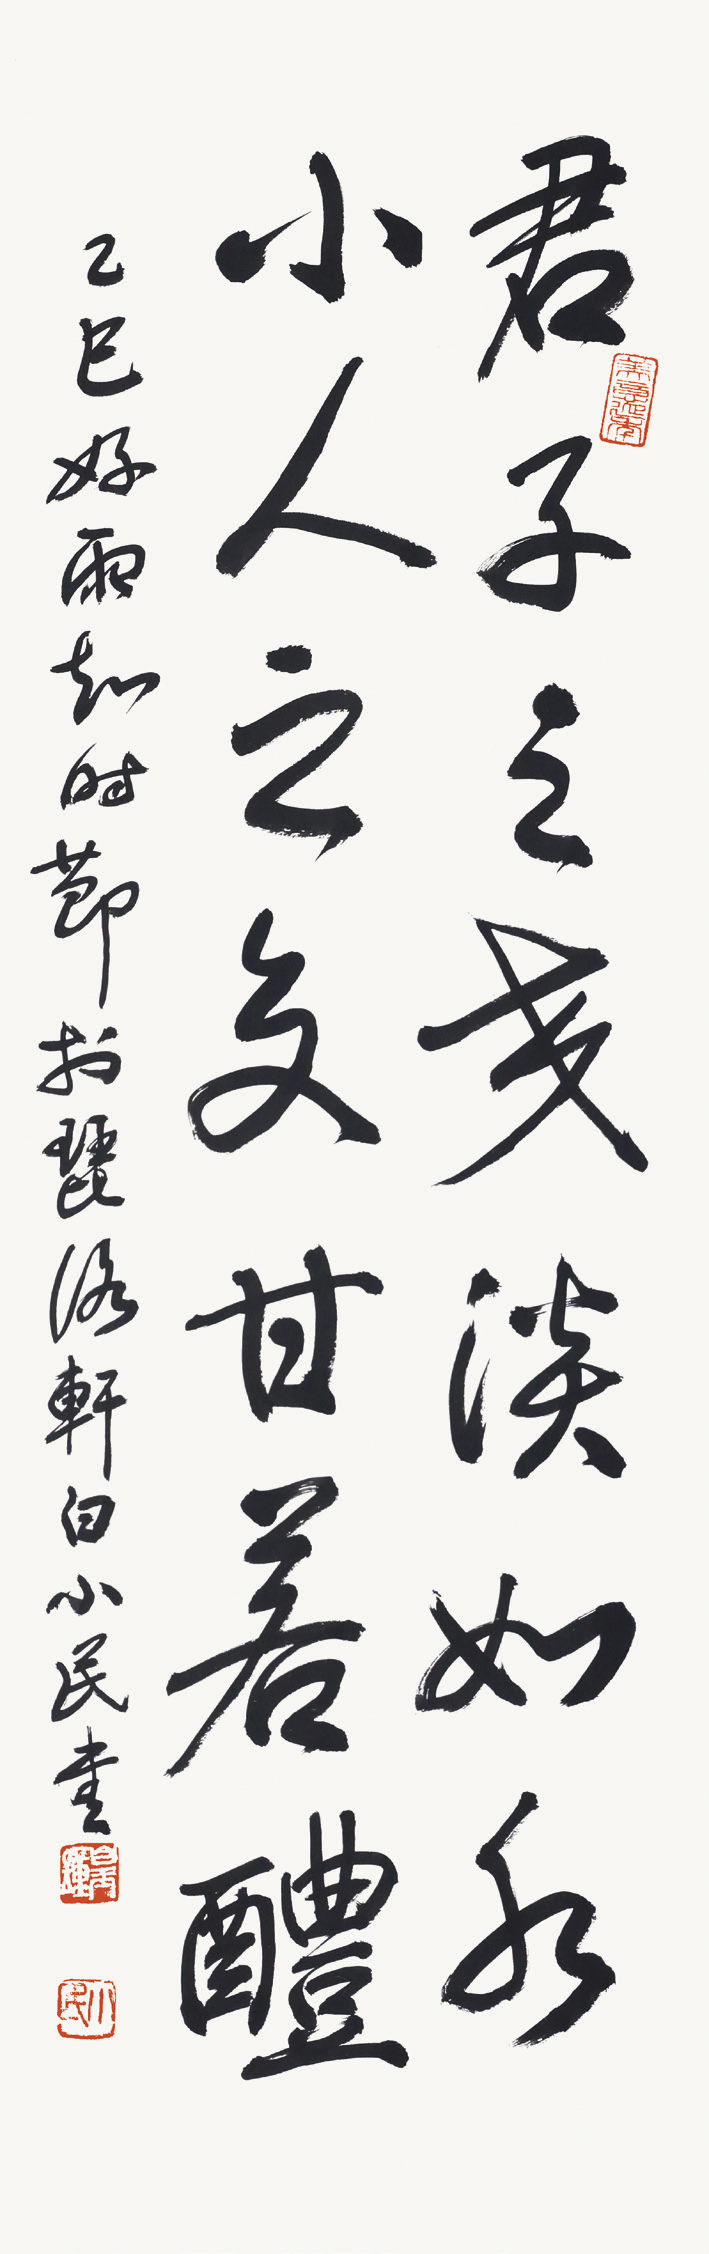 君子之交淡如水
小人之交甘若醴
乙巳好雨知时节于琵洛轩白小民书
小民